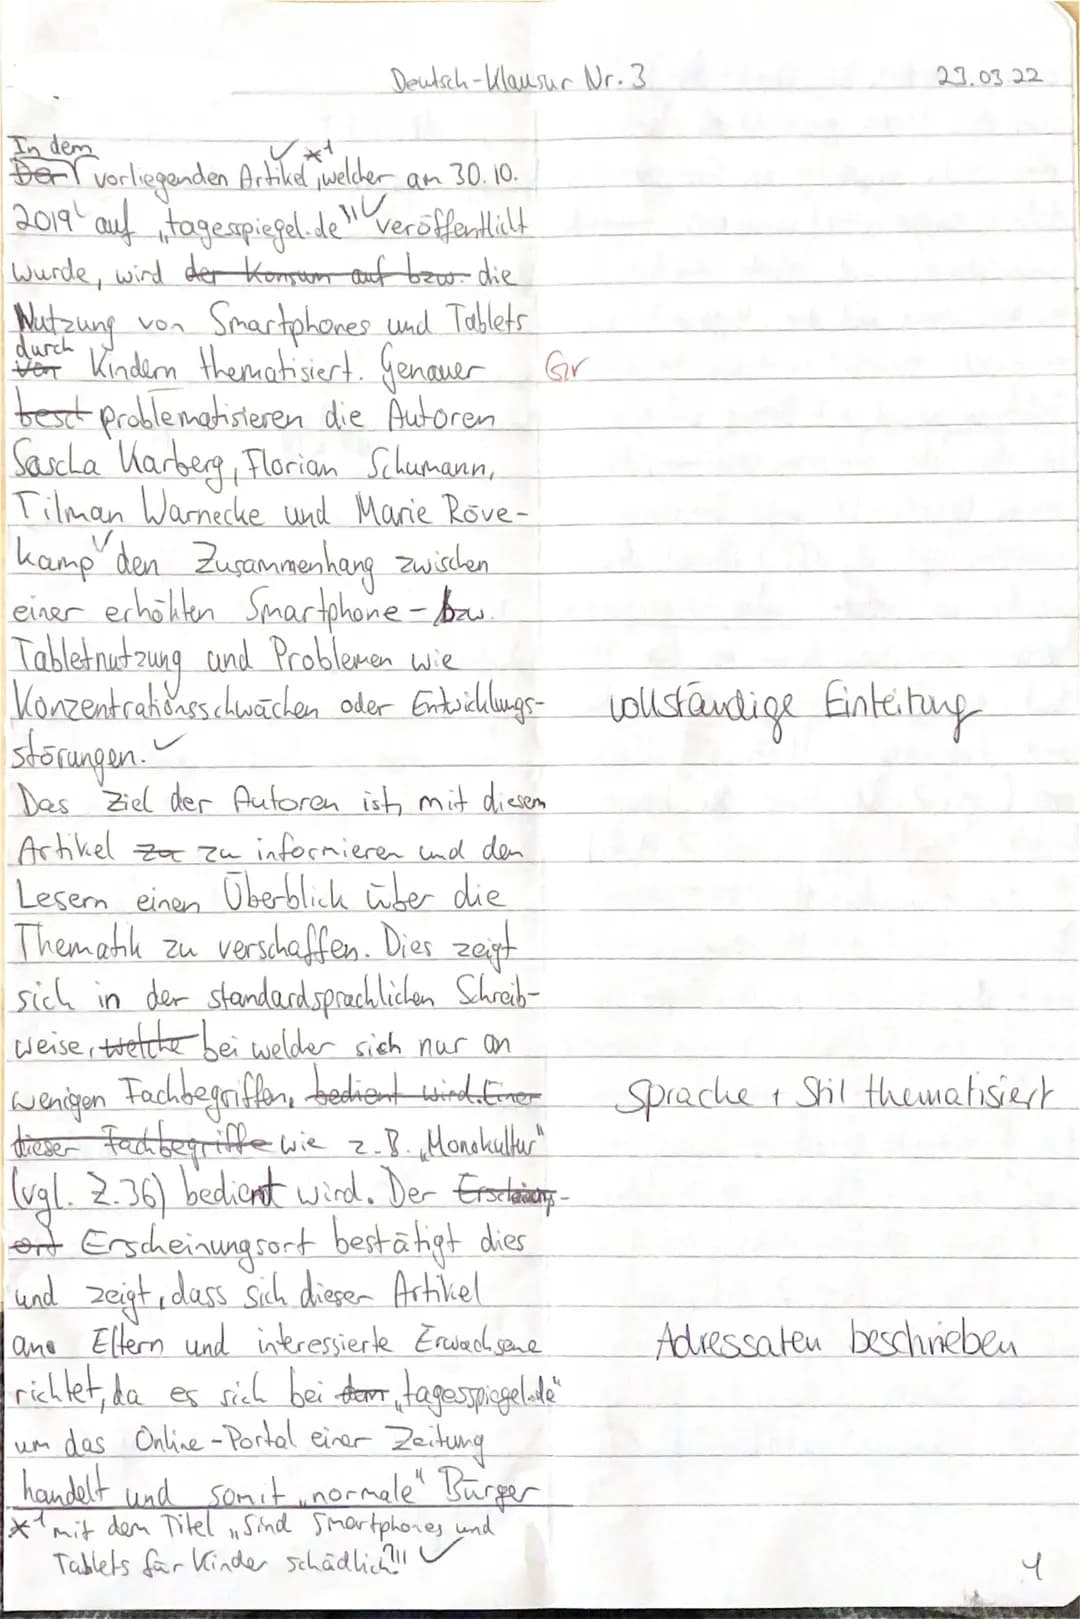 Deutsch-Klausur Nr. 3 23.03.22
In dem
Der vorliegenden Artikel *1, welcher am 30.10.
2019 auf „tagesspiegel.de" veröffentlicht
wurde, wird der Konsum auf bzw. die
Nutzung von Smartphones und Tablets
durch
von Kindern thematisiert. Genauer Gr
besch problematisieren die Autoren
Sascha Karberg, Florian Schumann,
Tilman Warnecke und Marie Röve-
kamp den Zusammenhang zwischen
einer erhöhten Smartphone- bzw.
Tabletnutzung und Problemen wie
Konzentrationsschwächen oder Entwicklungs- vollständige Einleitung
störungen.
Das Ziel der Autoren ist, mit diesem
Artikel zu informieren und den
Lesern einen Überblick über die
Thematik zu verschaffen. Dies zeigt
sich in der standardsprachlichen Schreib-
weise, welche bei welcher sich nur an
wenigen Fachbegriffen, bedient wird. Einer Sprache + Stil thematisiert
dieser Fachbegriffe wie z.B. „Monokultur"
(vgl. Z.36) bedient wird. Der Erscheinungs-
ort Erscheinungsort bestätigt dies
und zeigt, dass sich dieser Artikel
an Eltern und interessierte Erwachsene Adressaten beschrieben
richtet, da es sich bei dem „tagesspiegel.de"
um das Online-Portal einer Zeitung
handelt und somit „normale" Bürger
*1 mit dem Titel „Sind Smartphones und
Tablets für Kinder schädlich?" 1